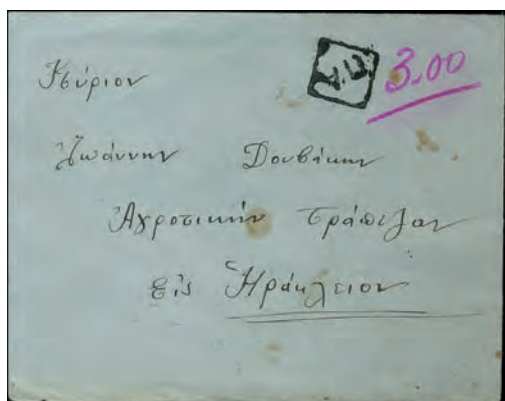 3.00
Κύριον
Ἰωάννην Δουβάκην
Ἀγροτικήν Τράπεζαν
Εἰς Ἡράκλειον